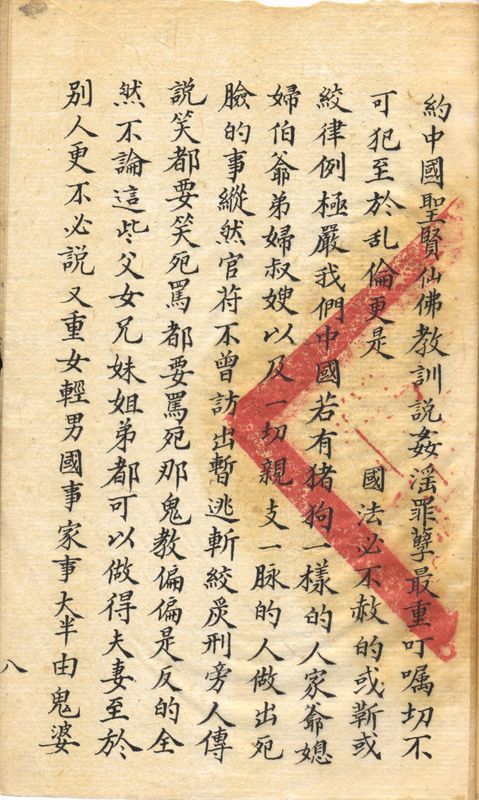 約中國聖賢仙佛教訓説姦淫罪孽最重叮嘱切不
可犯至於乱倫更是　　國法必不赦的或斬或
絞律例極嚴我們中國若有猪狗一樣的人家爺媳
婦伯爺弟婦叔嫂以及一切親支一脉的人做出死
臉的事縱然官府不曾訪出暫逃斬絞炭刑旁人傳
説笑都要笑死罵都要罵死那鬼教偏偏是反的全
然不論這些父女兄妹姐弟都可以做得夫妻至於
別人更不必説又重女輕男國事家事大半由鬼婆
八